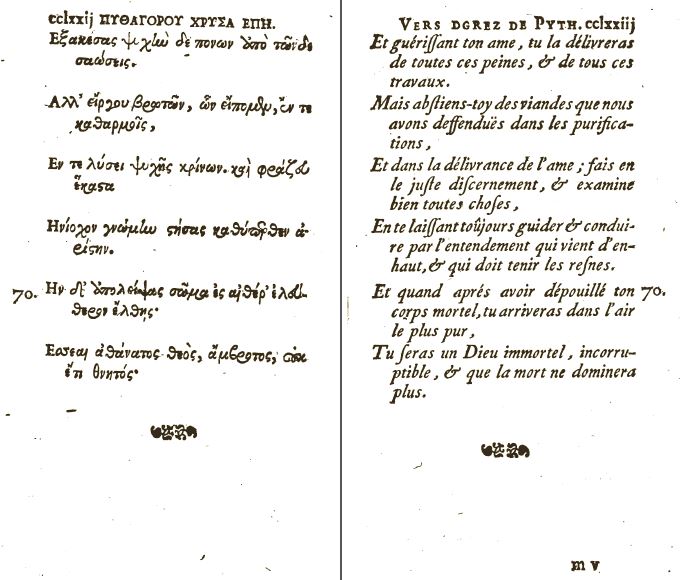 cclxxij ΠΥΘΑΓΟΡΟΥ ΧΡΥΣΑ ΕΠΗ.
Εξακέσας ψυχὴν δὲ πόνων ἀπὸ τῶν δε
σαώσεις.
Αλλ' εἴργου βρωτῶν, ὧν εἴπομεν, ἔν τε
καθαρμοῖς,
Εν τε λύσει ψυχῆς κρίνων. καὶ φράζου
ἕκαστα
Ηνίοχον γνώμην στήσας καθύπερθεν ἀ-
ρίστην.
70. Ην δ' ἀπολείψας σῶμα ἐς αἰθέρ' ἐλεύ-
θερον ἔλθῃς·
Εσσεαι ἀθάνατος θεὸς, ἄμβροτος, οὐκ
ἔτι θνητός·
VERS DOREZ DE PYTH. cclxxiij
Et guériſſant ton ame, tu la délivreras
de toutes ces peines, & de tous ces
travaux.
Mais abſtiens-toy des viandes que nous
avons deffenduës dans les purifica-
tions,
Et dans la délivrance de l'ame; fais en
le juſte diſcernement, & examine
bien toutes choſes,
En te laiſſant toûjours guider & condui-
re par l'entendement qui vient d'en-
haut, & qui doit tenir les reſnes.
Et quand aprés avoir dépouillé ton 70.
corps mortel, tu arriveras dans l'air
le plus pur,
Tu ſeras un Dieu immortel, incorru-
ptible, & que la mort ne dominera
plus.
m v